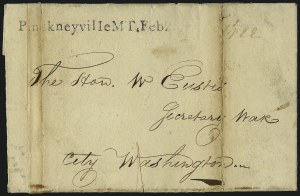 PinckneyvilleMT, Feb.
The Hon. W Eustis
Secretary War
City Washington